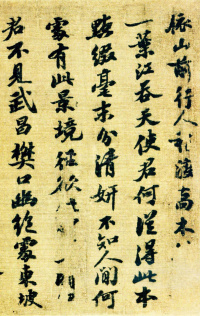 依山前行人稍度喬木
一葉江吞天使君何從得此本
點綴毫末分清妍不知人間何
處有此景境徑欲
君不見武昌樊口幽絕處東坡